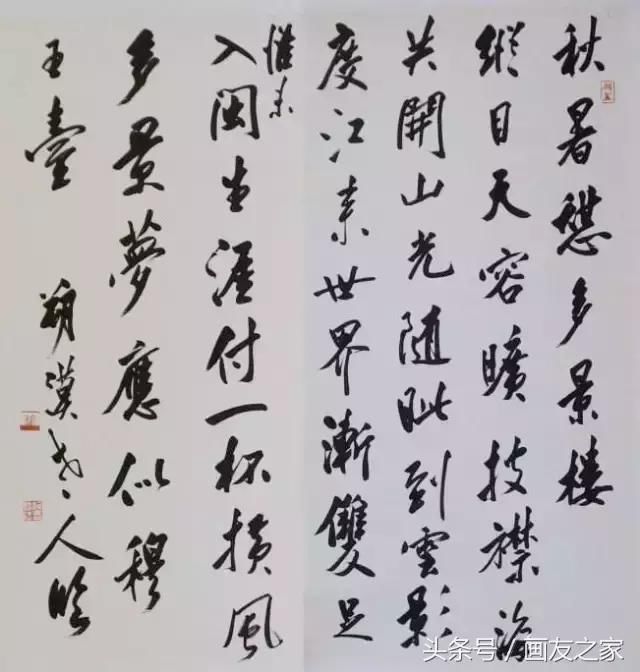 秋暑憩多景楼
縱目天容曠披襟海
共開山光随眦到雲影
度江来世界漸雙足
惜未
入閩生涯付一杯横風
多景夢應似穆
王臺 朔漠人臨
头条号/画友之家